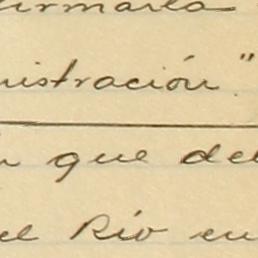 firmarla
nistración."
que del
el Río en